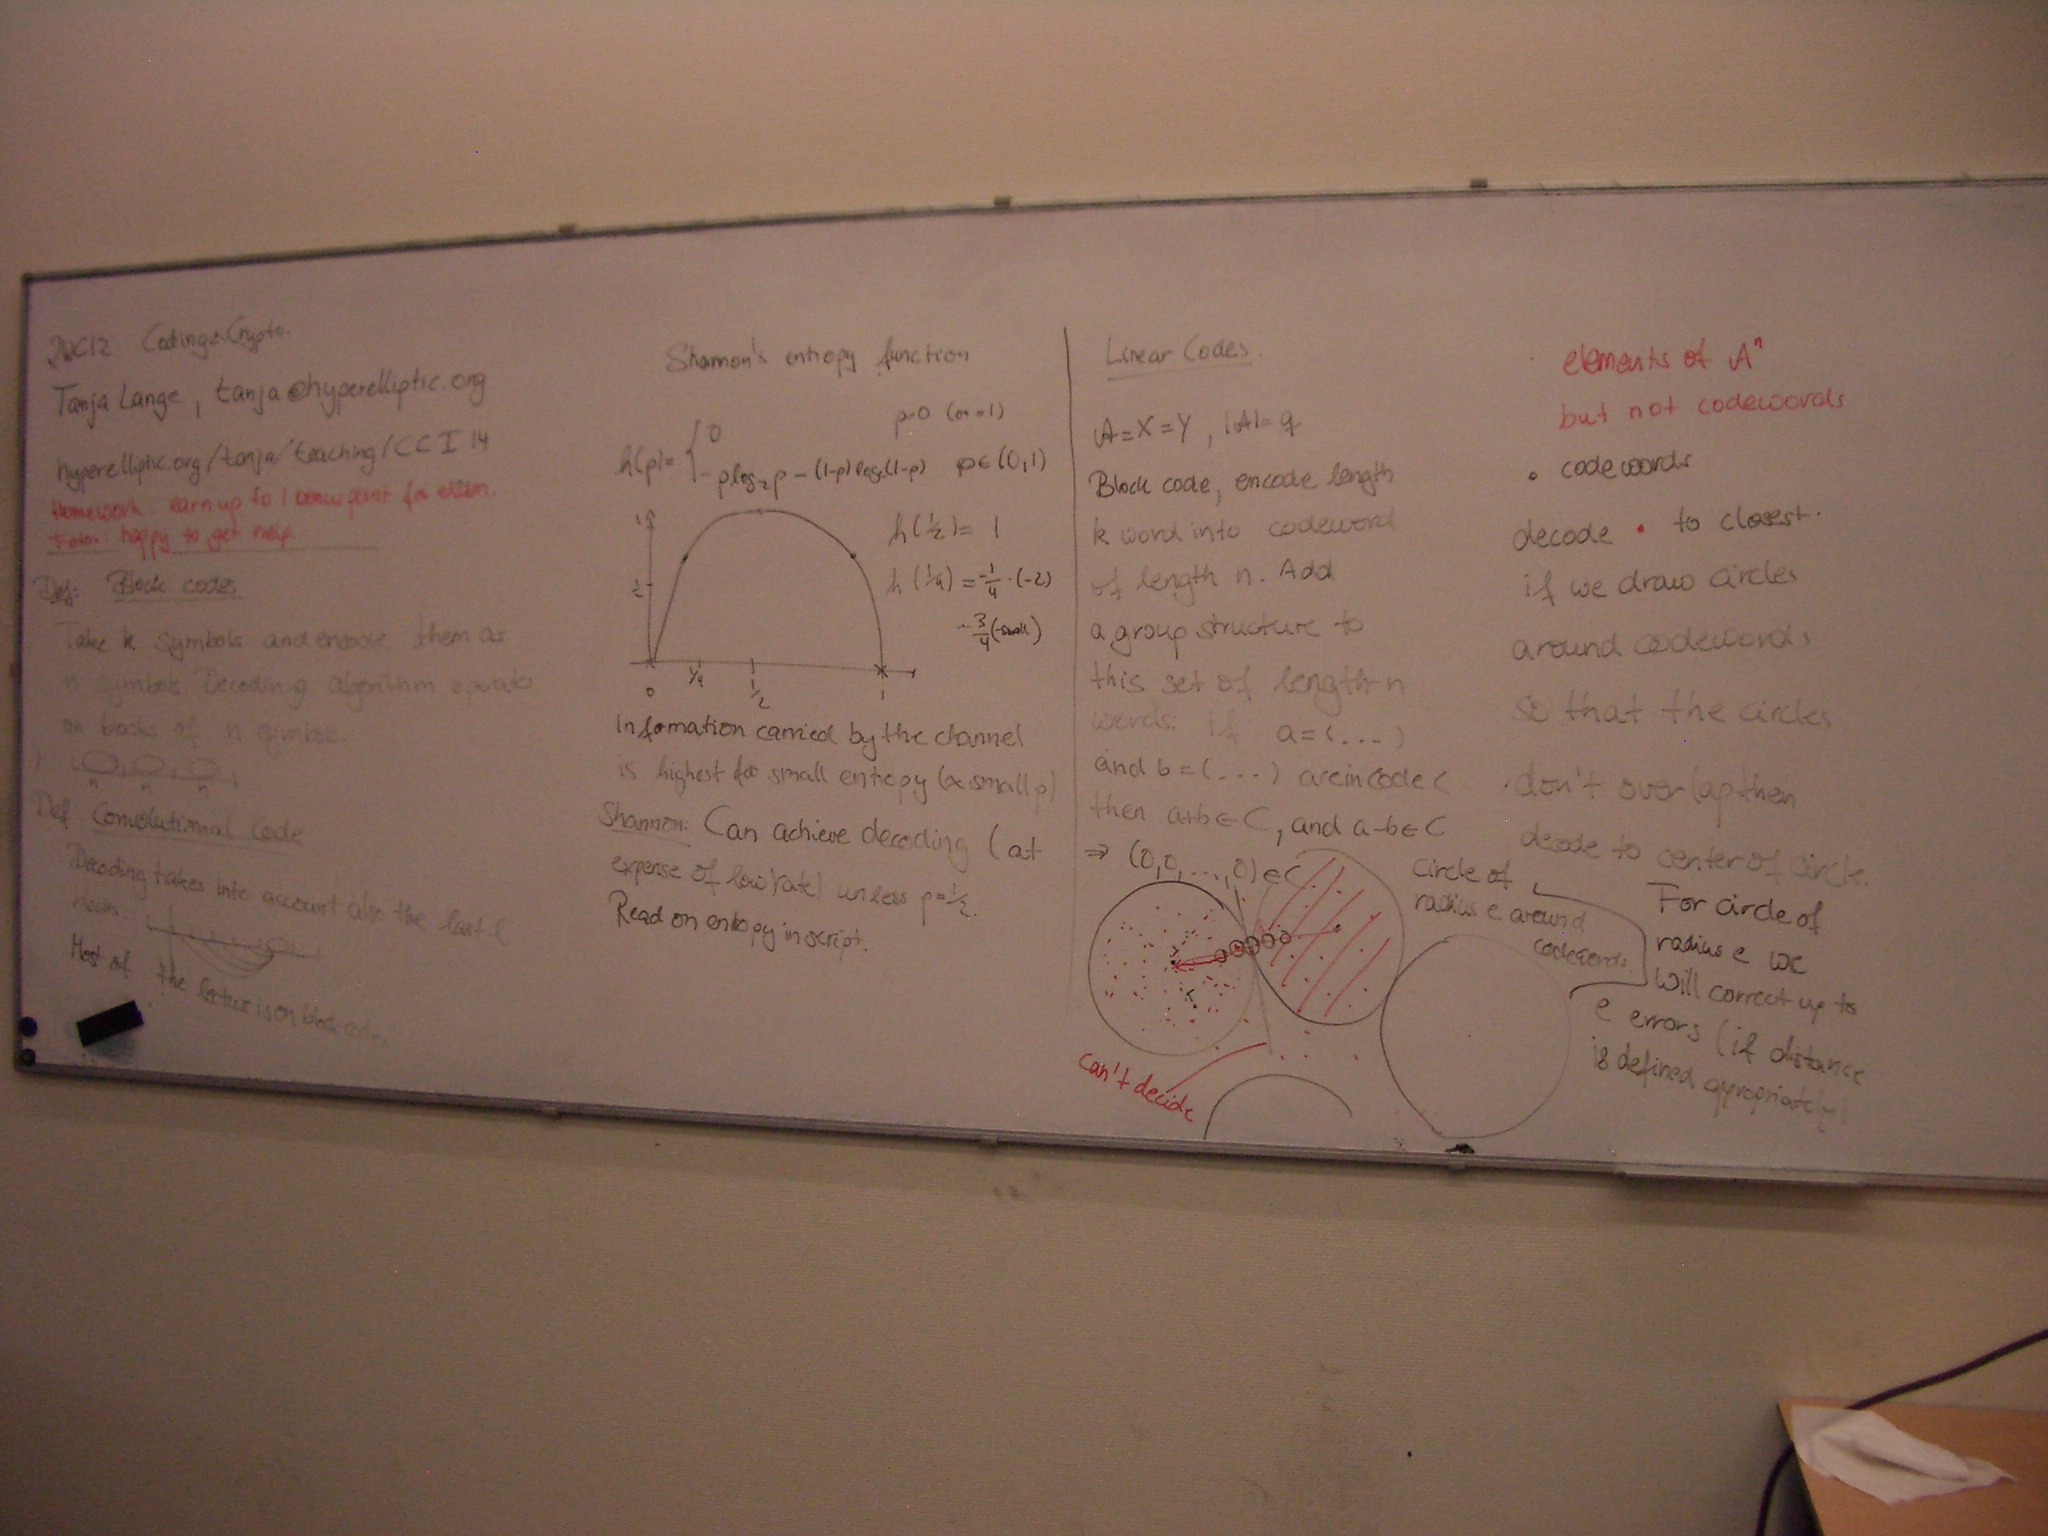 2WC12 Coding & Crypto.
Tanja Lange, tanja@hyperelliptic.org
hyperelliptic.org/tanja/teaching/CCI14
Homework earn up to 1 bonus point for exam.
happy to get help.
Def: Block codes
Take k symbols and encode them as
n symbols. Decoding algorithm operates
on blocks of n symbols.
n n n
Def Convolutional Code
Decoding takes into account also the last l
Most of the lecture is on block codes.
Shannon's entropy function
h(p)= { 0 p=0 (or =1)
-p log₂ p - (1-p) log₂(1-p) p∈(0,1)
1
h(1/2) = 1
h(1/4) = -1/4 · (-2)
1/2
- 3/4 (-small)
0 1/4 1/2 1
Information carried by the channel
is highest for small entropy (∝ small p)
Shannon: Can achieve decoding (at
expense of low rate) unless p=1/2.
Read on entropy in script.
Linear Codes.
A=X=Y, |A|=q
Block code, encode length
k word into codeword
of length n. Add
a group structure to
this set of length n
words: if a=(...)
and b=(...) are in code C
then a+b∈C, and a-b∈C
⇒ (0,0,...,0)∈C
can't decide
circle of
radius e around
codewords.
· elements of Aⁿ
but not codewords
• codewords
decode • to closest.
if we draw circles
around codewords
so that the circles
don't overlap then
decode to center of circle.
For circle of
radius e we
will correct up to
e errors (if distance
is defined appropriately)